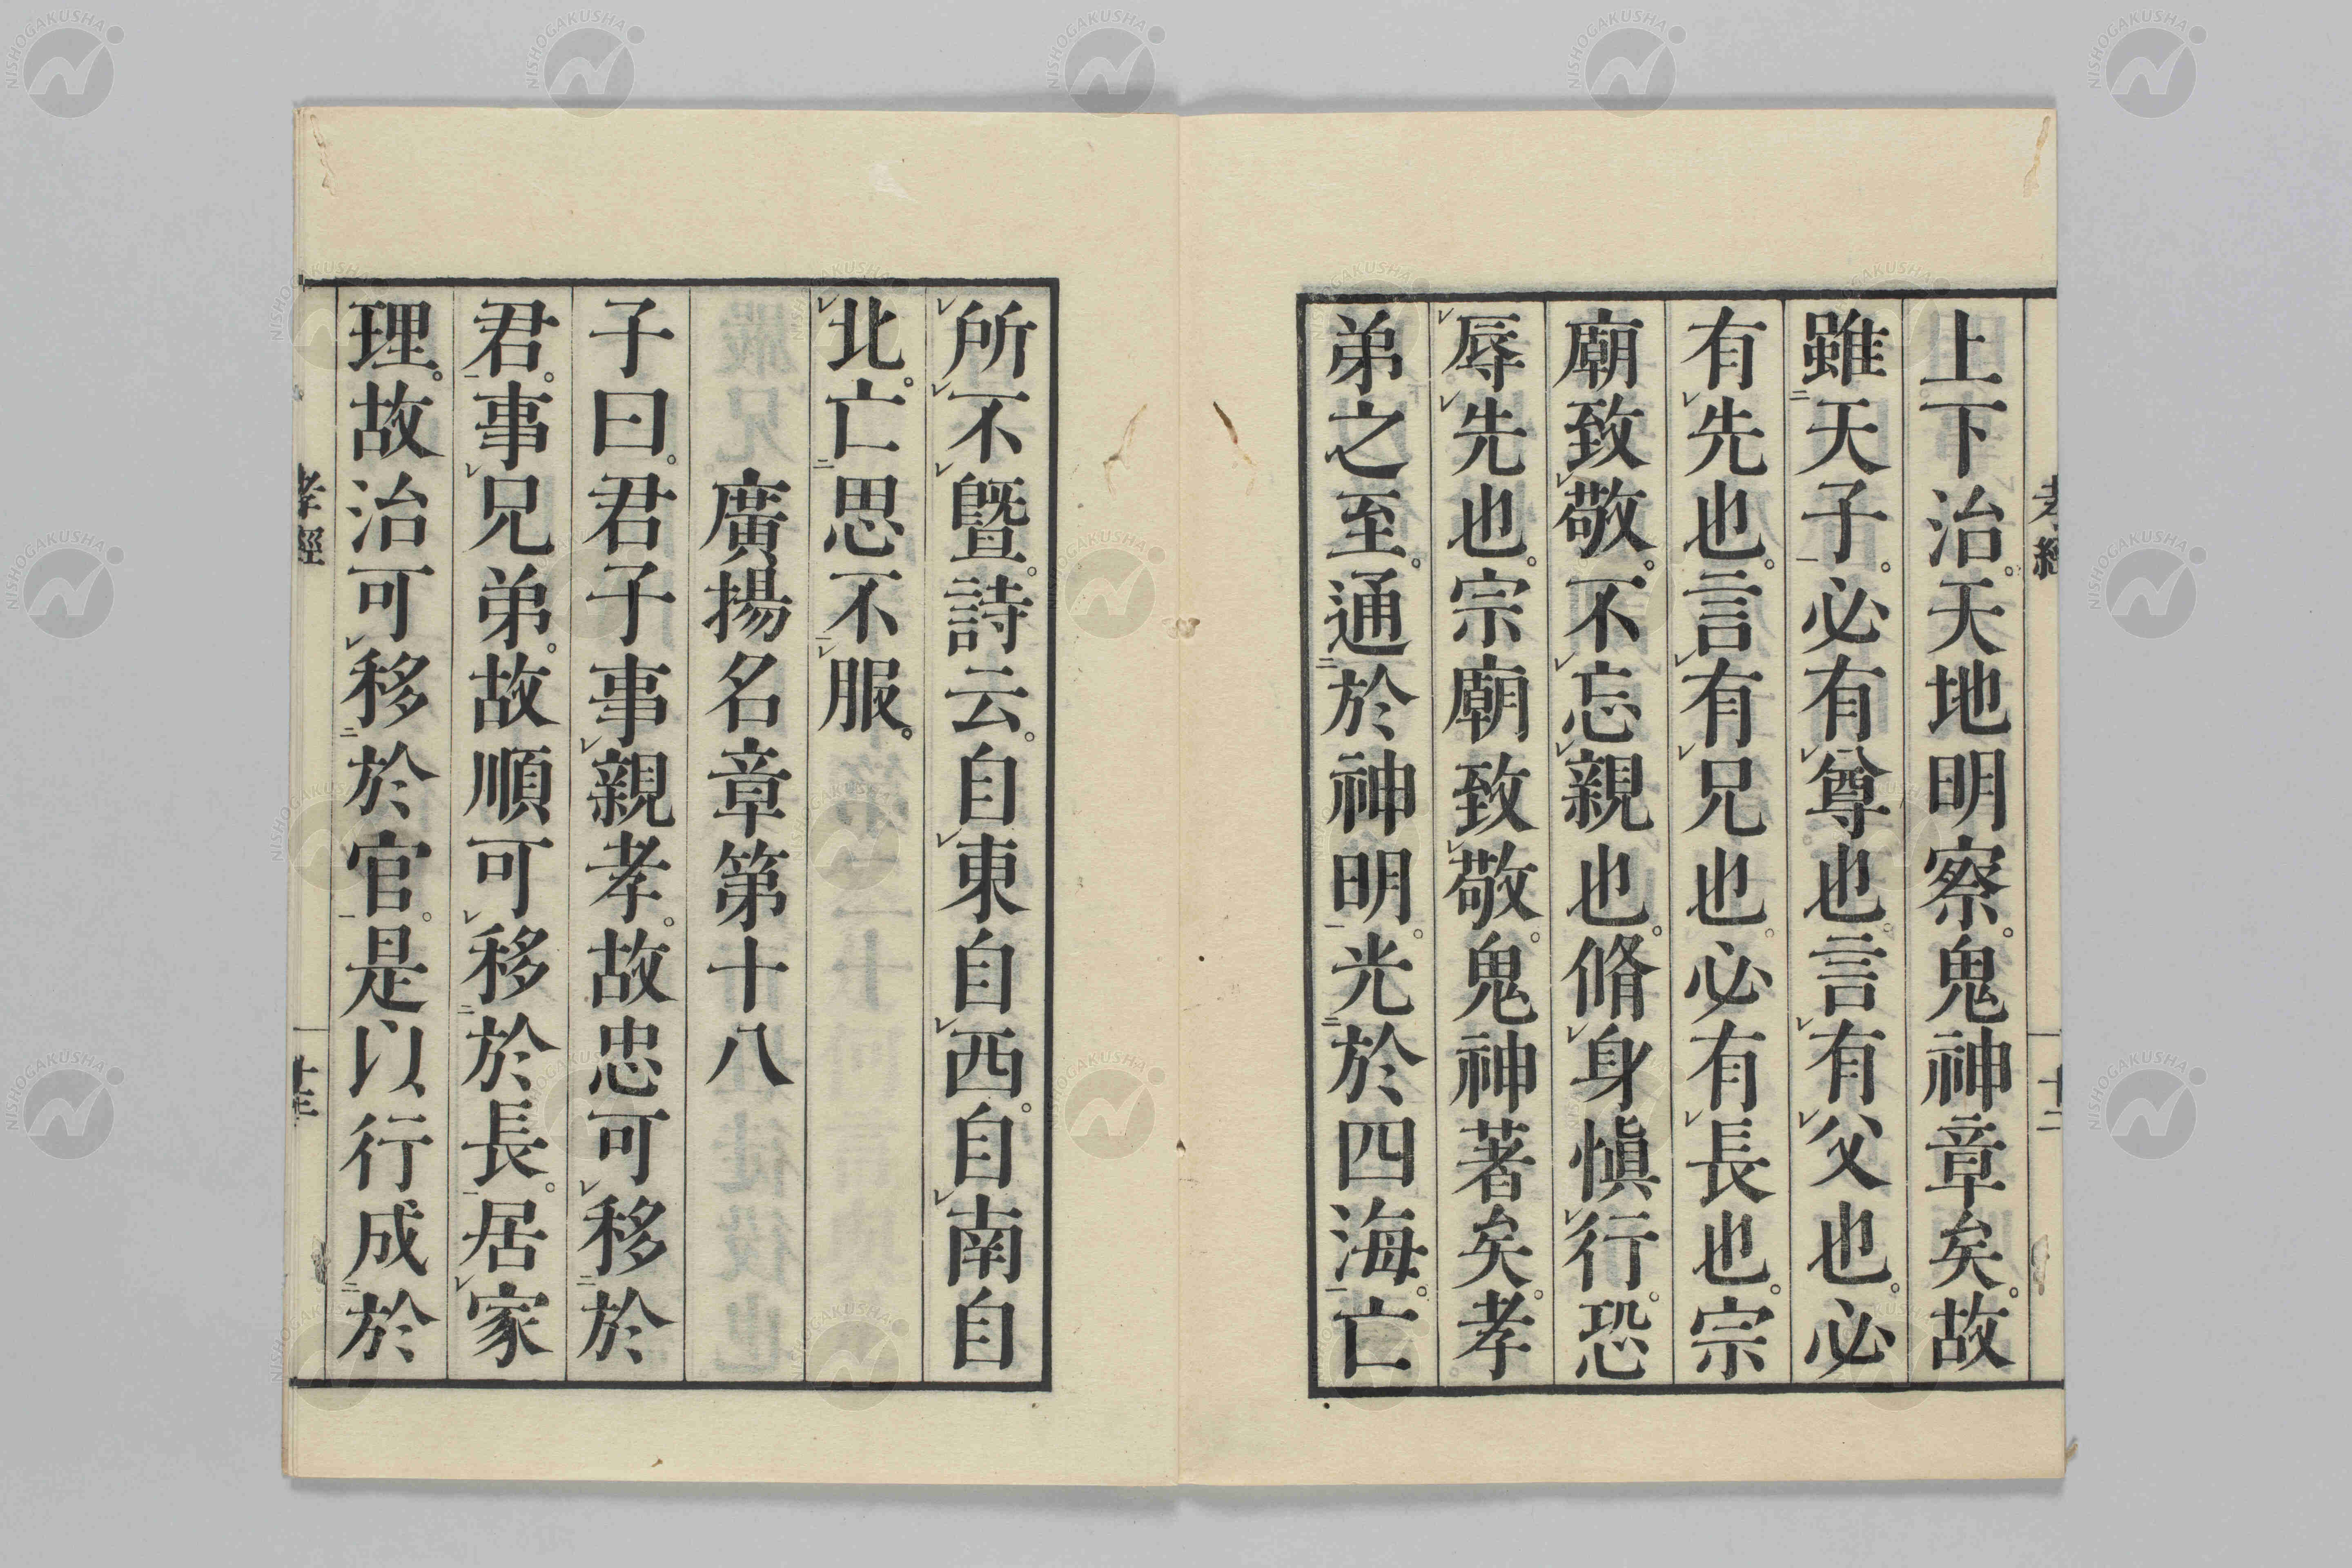 上下治。天地明察。鬼神章矣。故
雖天子。必有尊也。言有父也。必
有先也。言有兄也。必有長也。宗
廟致敬。不忘親也。脩身愼行。恐
辱先也。宗廟致敬。鬼神著矣。孝
弟之至。通於神明。光於四海。亡
所不曁。詩云。自東自西。自南自
北。亡思不服。
廣揚名章第十八
子曰。君子事親孝。故忠可移於
君。事兄弟。故順可移於長。居家
理。故治可移於官。是以行成於
孝經
十三
NISHOGAKUSHA